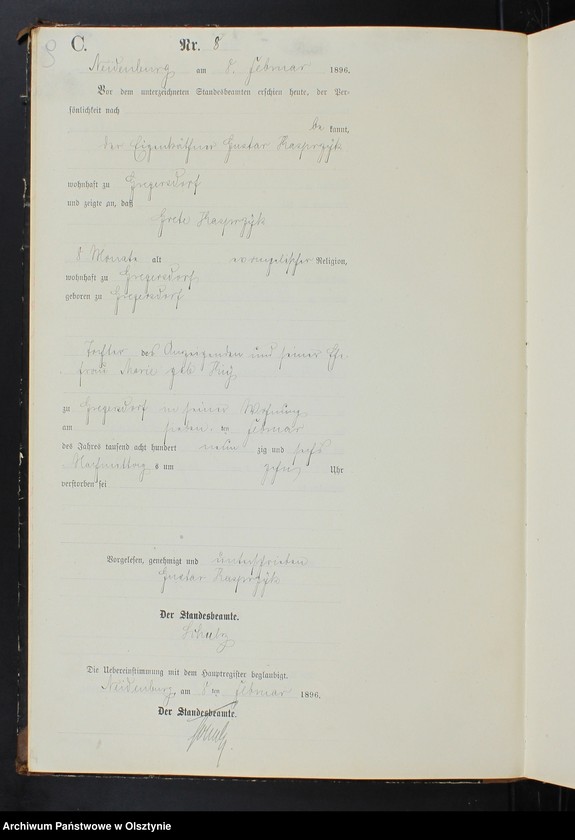 8
C. Nr. 8
Neidenburg am 8. Februar 1896.
Vor dem unterzeichneten Standesbeamten erschien heute, der Per-
sönlichkeit nach
be kannt,
der Eigenkäthner Gustav Kasprzyk
wohnhaft zu Gregersdorf
und zeigte an, daß
Grete Kasprzyk
Monate alt evangelischer Religion,
wohnhaft zu Gregersdorf
geboren zu Gregersdorf
Tochter des Anzeigenden und seiner Ehe-
frau Marie geb.
zu Gregersdorf in seiner Wohnung
am sieben ten Februar
des Jahres tausend acht hundert neun zig und sechs
Nachmittags um zehn Uhr
verstorben sei
Vorgelesen, genehmigt und unterschrieben
Gustav Kasprzyk
Der Standesbeamte.
Schulz
Die Uebereinstimmung mit dem Hauptregister beglaubigt.
Neidenburg am 8 ten Februar 1896.
Der Standesbeamte.
Schulz
Archiwum Państwowe w Olsztynie